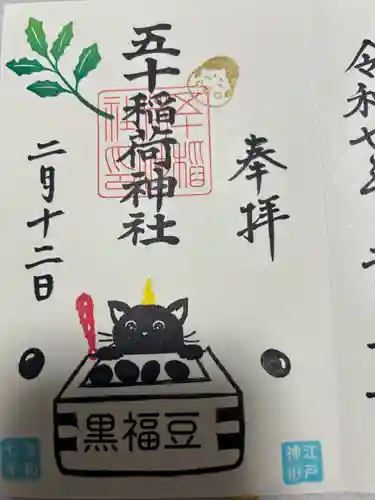 奉拝
五十稲荷神社
二月十二日
黒福豆
江戸
神田
令和
七年
令和七年